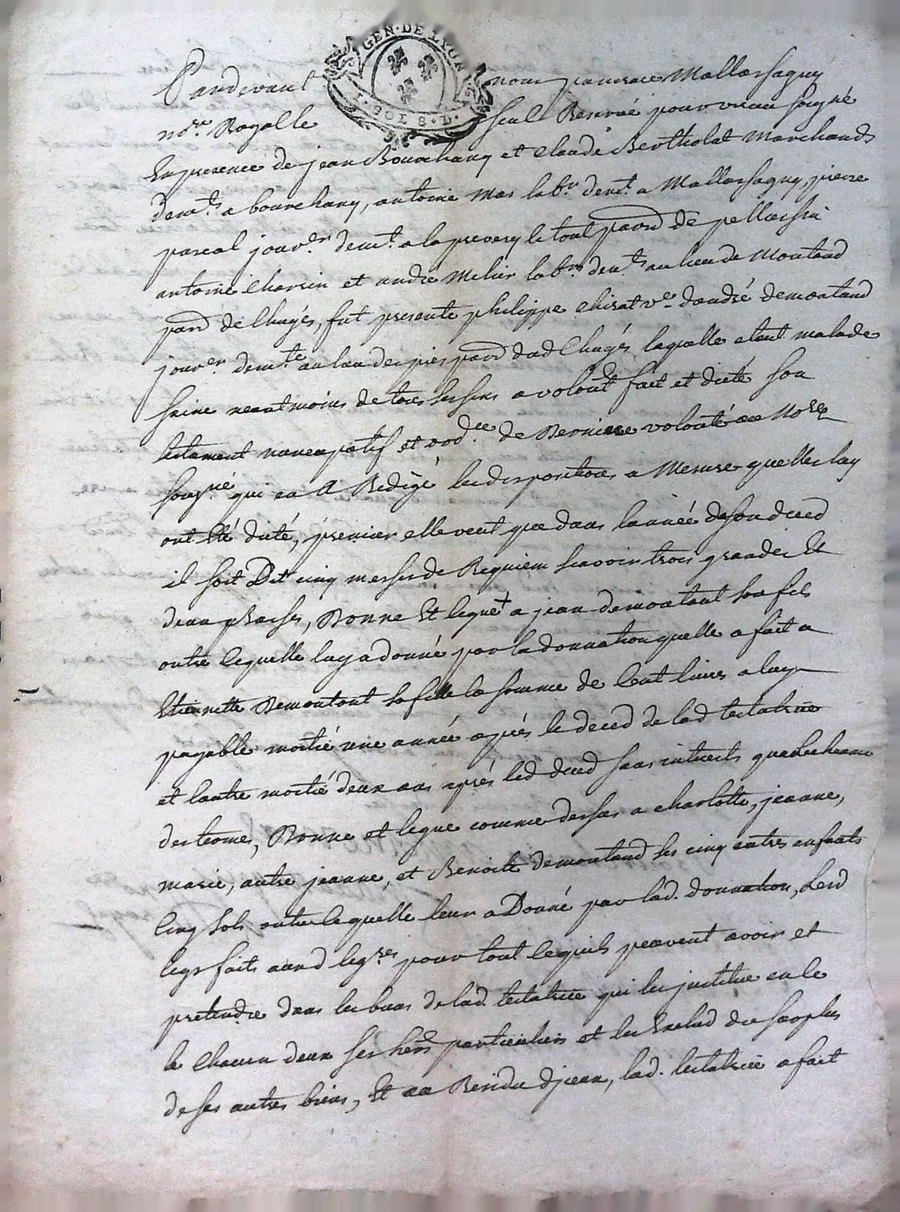 GEN·DE·LYON
2 SOLS 8 D.
Pardevant nous Mallassagny
no.re Royal le seul Reservé pour vu au sougné
En presence de jean Bourchany et Claude Bertholat Marchands
dem.ts a bourchany, antoine mas lab.r dem.t a Mallassagny, pierre
pascal jour.er dem.t a la le tout par.d de pellussin
antoine Charrin et andré Melier lab.rs dem.ts au lieu de Montaud
par.d de Chuyés, fut presente philippe Chirat v.e d'andré demontaud
jour.er dem.te au lieu de par.d dud Chuyés laquelle etant malade
saine neantmoins de tous ses sens a volont.t fait et dicté son
testament nuncupatif et ord.ce de Derniere volonté au No.re
sougné qui en A Redigé les dispositions a Mesure quelles luy
ont Eté dicté, premier elle veut que dans lannée de son deced
il soit Dit cinq messes de Requiem scavoir trois grandes et
deux basses, Donne Et legue a jean demontaut son fils
outre ce quelle luy a donné par la donnation quelle a fait a
Etiennette Demontaut sa fille la somme de Cent livres a luy
payable moitié une année après le deced de lad testatrice
et lautre moitié deux ans aprés led deced sans interets
des termes, Donne et legue comme dessus a charlotte, jeanne,
marie, autre jeanne, et Benoite demontaud ses cinq autres enfants
Cinq sols outre ce quelle leur a Donné par lad. donnation, Lesd
legs faits auxd leg.res pour tout ce quils peuvent avoir et
pretendre dans les biens de lad. testatrice qui les justitue en ce
la Chacun deux ses her.s particuliers et les Exclud du surplus
de ses autres biens, Et au Residu diceux, lad. testatrice a fait